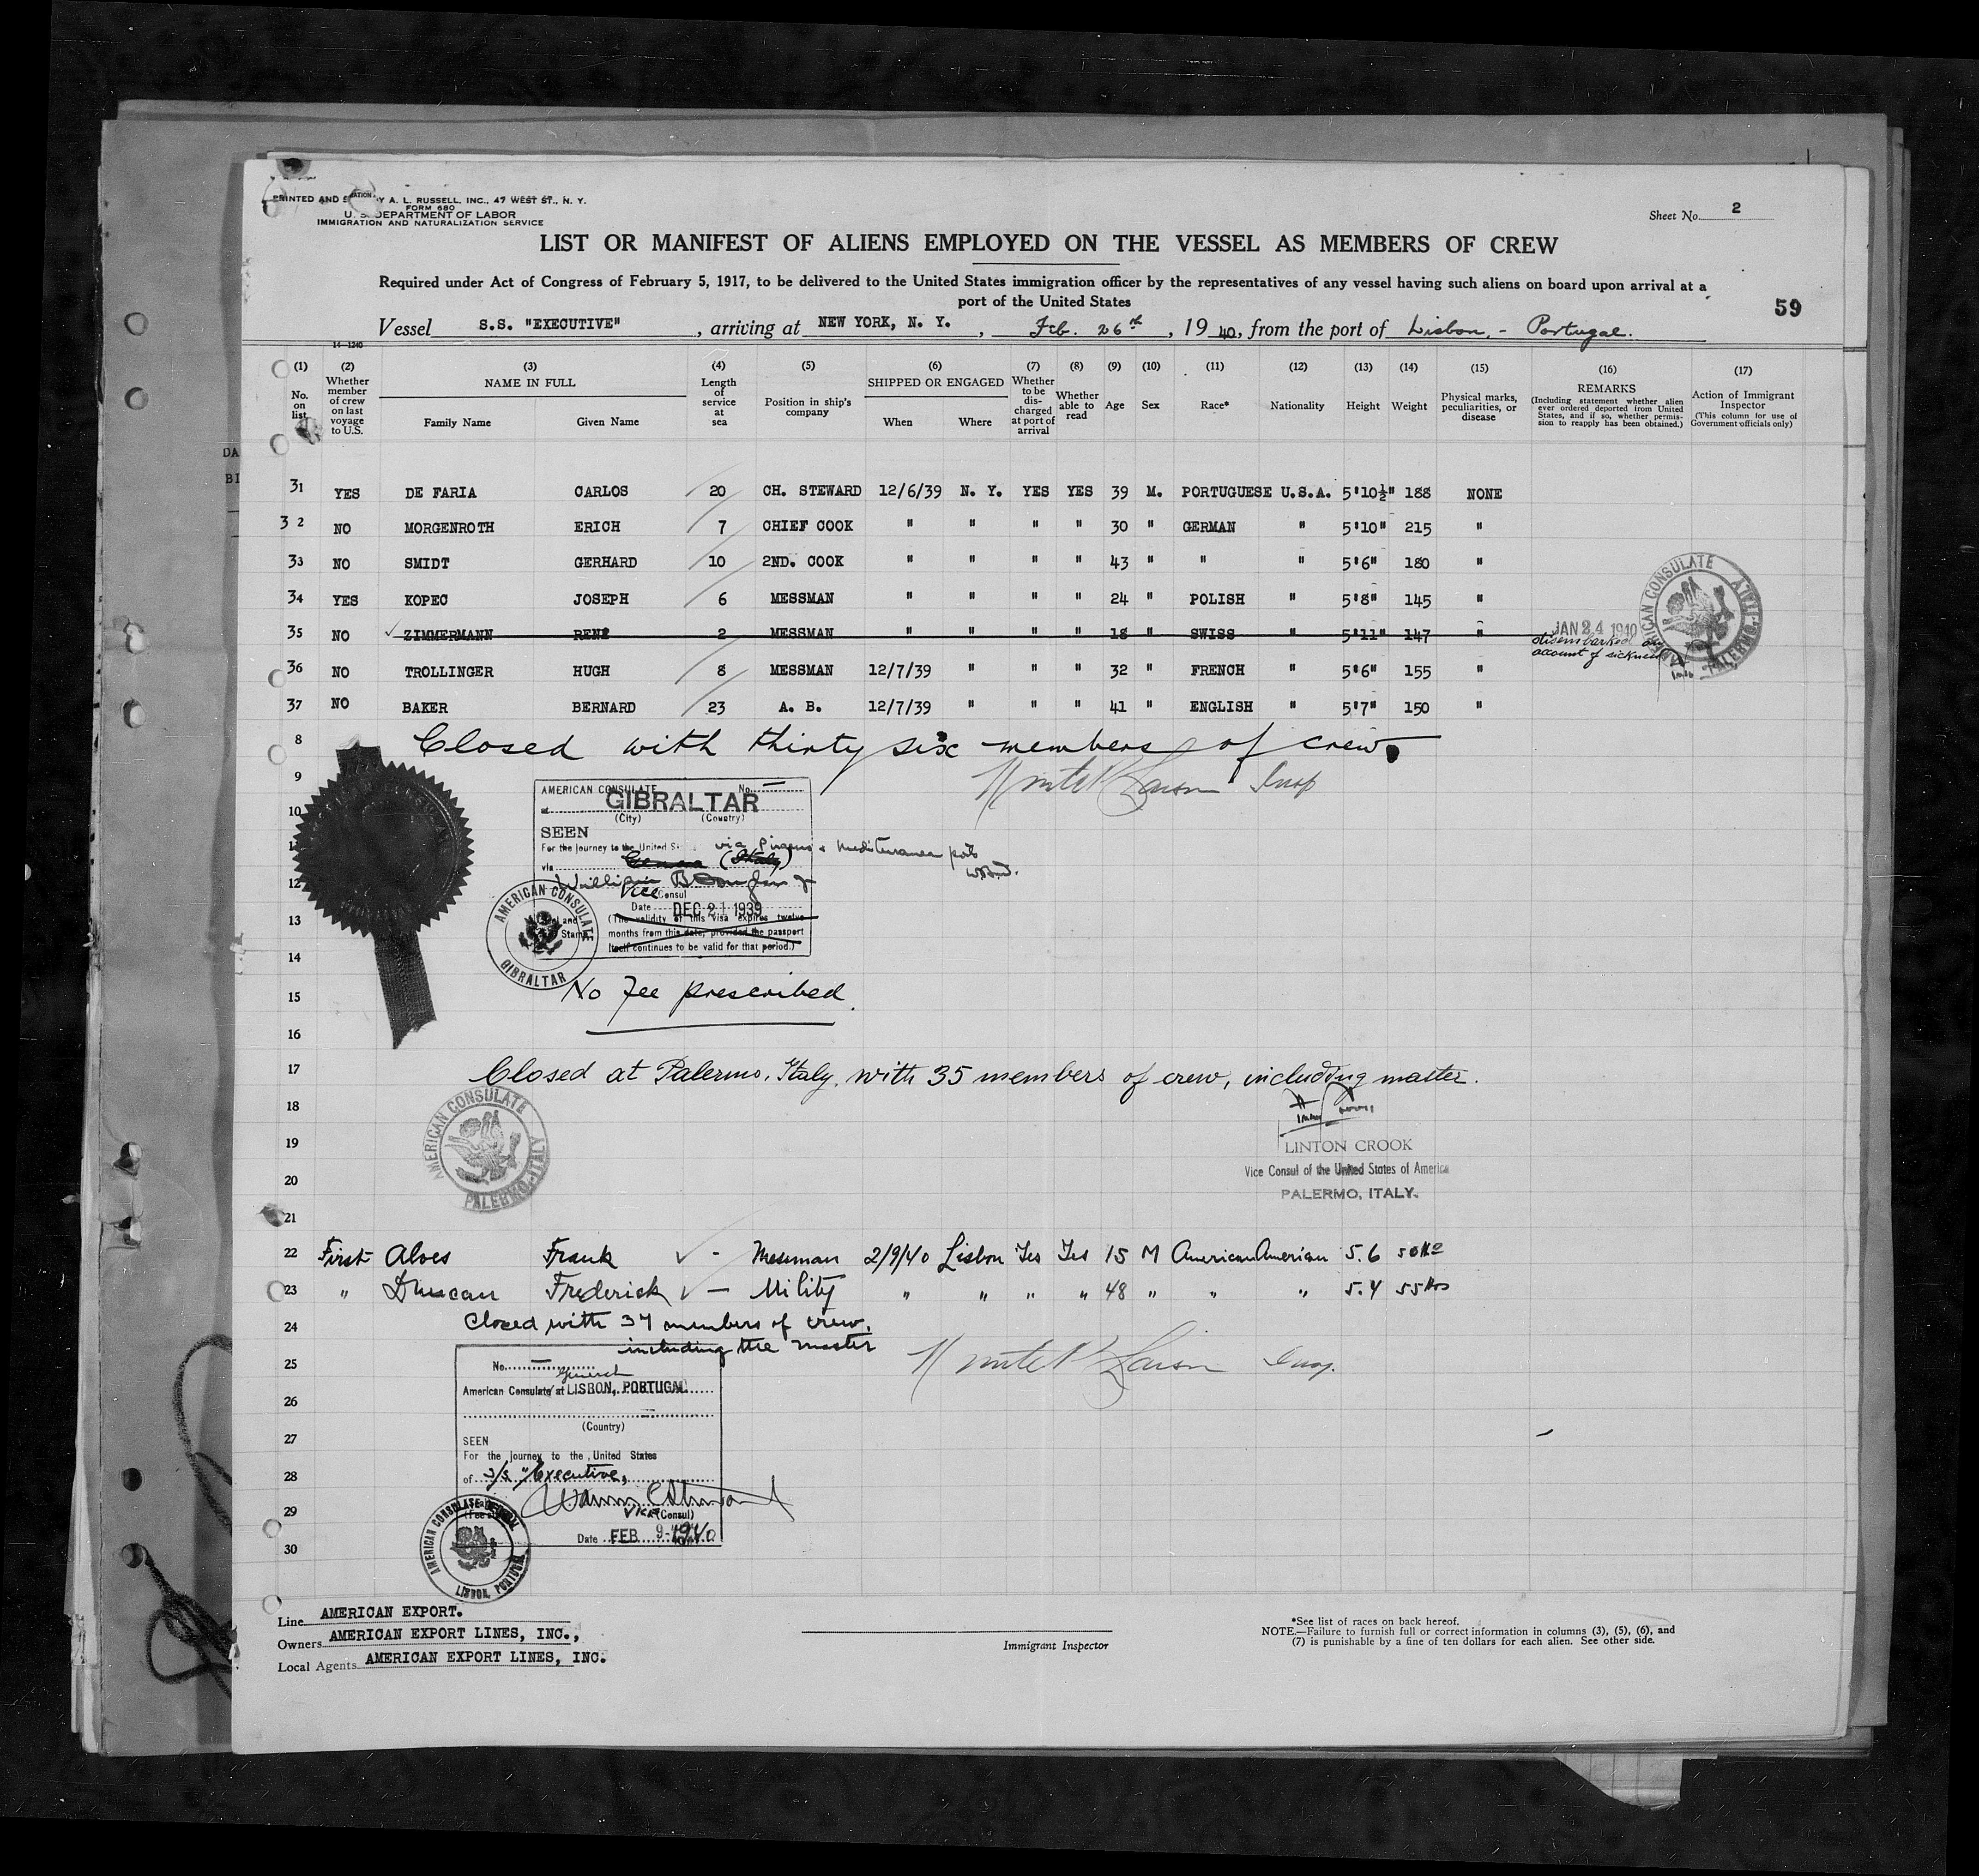 PRINTED AND S BY A. L. RUSSELL, INC., 47 WEST ST., N. Y.
FORM 680
U. S. DEPARTMENT OF LABOR
IMMIGRATION AND NATURALIZATION SERVICE
Sheet No. 2
LIST OR MANIFEST OF ALIENS EMPLOYED ON THE VESSEL AS MEMBERS OF CREW
Required under Act of Congress of February 5, 1917, to be delivered to the United States immigration officer by the representatives of any vessel having such aliens on board upon arrival at a
port of the United States
59
Vessel S.S. "EXECUTIVE", arriving at NEW YORK, N. Y., Feb. 26th, 1940, from the port of Lisbon, - Portugal.
14-1240
(1) (2) (3) (4) (5) (6) (7) (8) (9) (10) (11) (12) (13) (14) (15) (16) (17)
No. on list
Whether member of crew on last voyage to U.S.
NAME IN FULL
Family Name Given Name
Length of service at sea
Position in ship's company
SHIPPED OR ENGAGED
When Where
Whether to be discharged at port of arrival
Whether able to read
Age Sex Race* Nationality Height Weight
Physical marks, peculiarities, or disease
REMARKS
(Including statement whether alien ever ordered deported from United States, and if so, whether permission to reapply has been obtained.)
Action of Immigrant Inspector
(This column for use of Government officials only)
DA
BI
31 YES DE FARIA CARLOS 20 CH. STEWARD 12/6/39 N. Y. YES YES 39 M. PORTUGUESE U.S.A. 5'10½" 188 NONE
32 NO MORGENROTH ERICH 7 CHIEF COOK " " " " 30 " GERMAN " 5'10" 215 "
33 NO SMIDT GERHARD 10 2ND. COOK " " " " 43 " " " 5'6" 180 "
34 YES KOPEC JOSEPH 6 MESSMAN " " " " 24 " POLISH " 5'8" 145 "
35 NO ZIMMERMANN RENE 2 MESSMAN " " " " 18 " SWISS " 5'11" 147 " JAN 24 1940
disembarked on
account of sickness
AMERICAN CONSULATE
PALERMO-ITALY
36 NO TROLLINGER HUGH 8 MESSMAN 12/7/39 " " " 32 " FRENCH " 5'6" 155 "
37 NO BAKER BERNARD 23 A. B. 12/7/39 " " " 41 " ENGLISH " 5'7" 150 "
8 Closed with thirty six members of crew
9 Larson Insp
10
AMERICAN CONSULATE No.
at GIBRALTAR
(City) (Country)
SEEN
For the journey to the United S via Piraeus & Mediterranean ports
via Genoa (Italy)
12
Vice Consul
Date DEC 21 1939
13
(The validity of this visa expires twelve
months from this date, provided the passport
itself continues to be valid for that period.)
Seal and
Stamp
AMERICAN CONSULATE
GIBRALTAR
14
15 No fee prescribed.
16
17 Closed at Palermo, Italy, with 35 members of crew, including master.
18
AMERICAN CONSULATE
PALERMO-ITALY
19 LINTON CROOK
Vice Consul of the United States of America
20 PALERMO, ITALY.
21
22 First Alves Frank - Messman 2/9/40 Lisbon Yes Yes 15 M American American 5.6 50 Ko
23 " Duncan Frederick — Utility " " " " 48 " " " 5.4 55 Kos
24 Closed with 37 members of crew,
including the master
25 No.
Larson Insp.
General
American Consulate at LISBON, PORTUGAL
26
(Country)
27 SEEN
For the journey to the United States
28 of S/S "Executive,
29 VICE (Consul)
30 Date FEB 9 - 1940
AMERICAN CONSULATE GENERAL
LISBON, PORTUGAL
Line AMERICAN EXPORT.
Owners AMERICAN EXPORT LINES, INC.,
Local Agents AMERICAN EXPORT LINES, INC.
Immigrant Inspector
*See list of races on back hereof.
NOTE.—Failure to furnish full or correct information in columns (3), (5), (6), and
(7) is punishable by a fine of ten dollars for each alien. See other side.